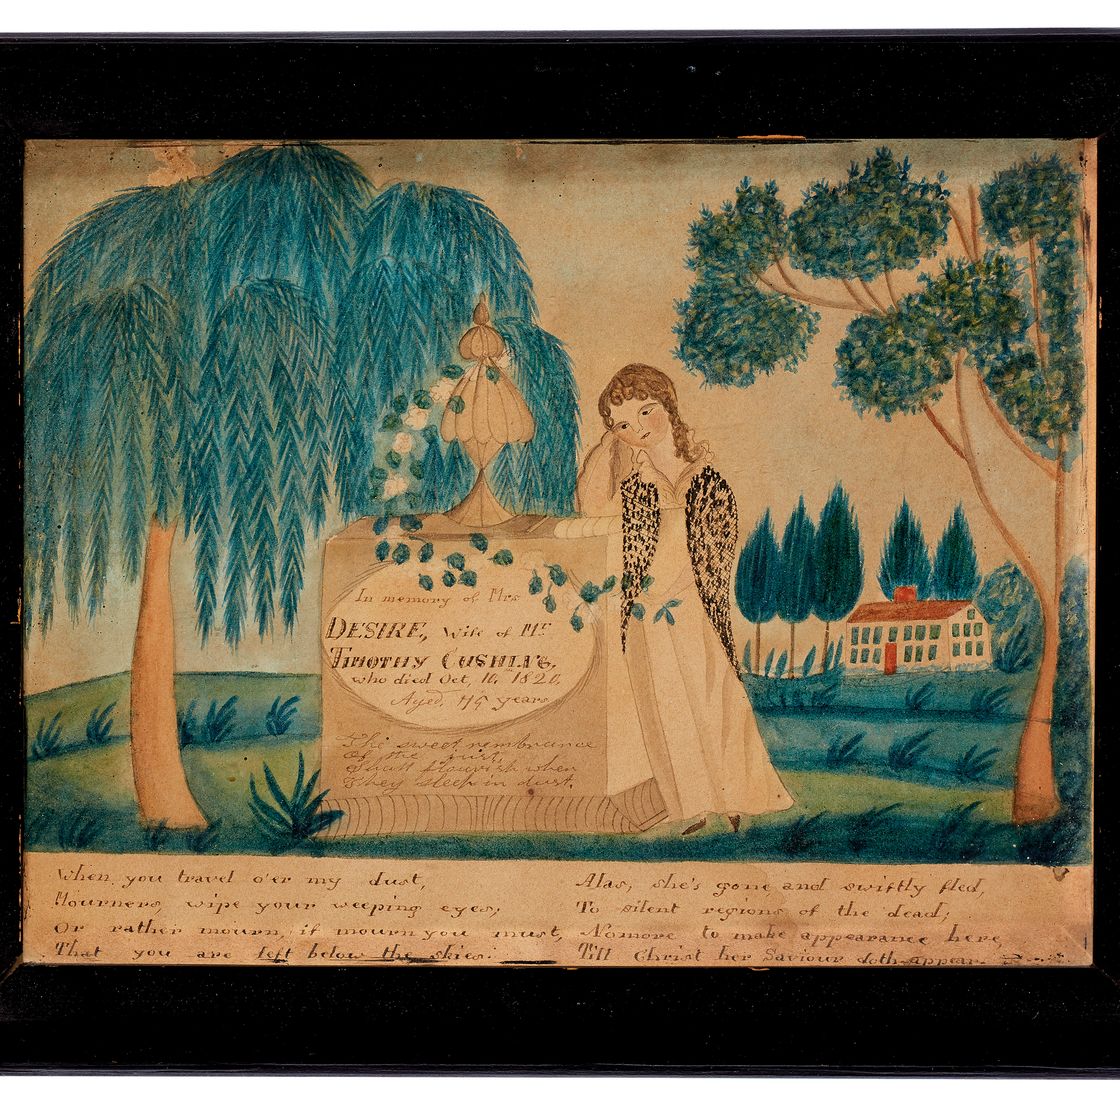 In memory of Mrs
DESIRE, Wife of Mr
TIMOTHY CUSHING,
who died Oct, 10, 1820,
Aged, 45 years
The sweet rembrance
Of the just,
Shall flourish when
They sleep in dust.
When you travel o'er my dust,
Mourners, wipe your weeping eyes;
Or rather mourn, if mourn you must,
That you are left below the skies.
Alas, she's gone and swiftly fled,
To silent regions of the dead;
Nomore to make appearance here,
Till Christ her Saviour doth appear.